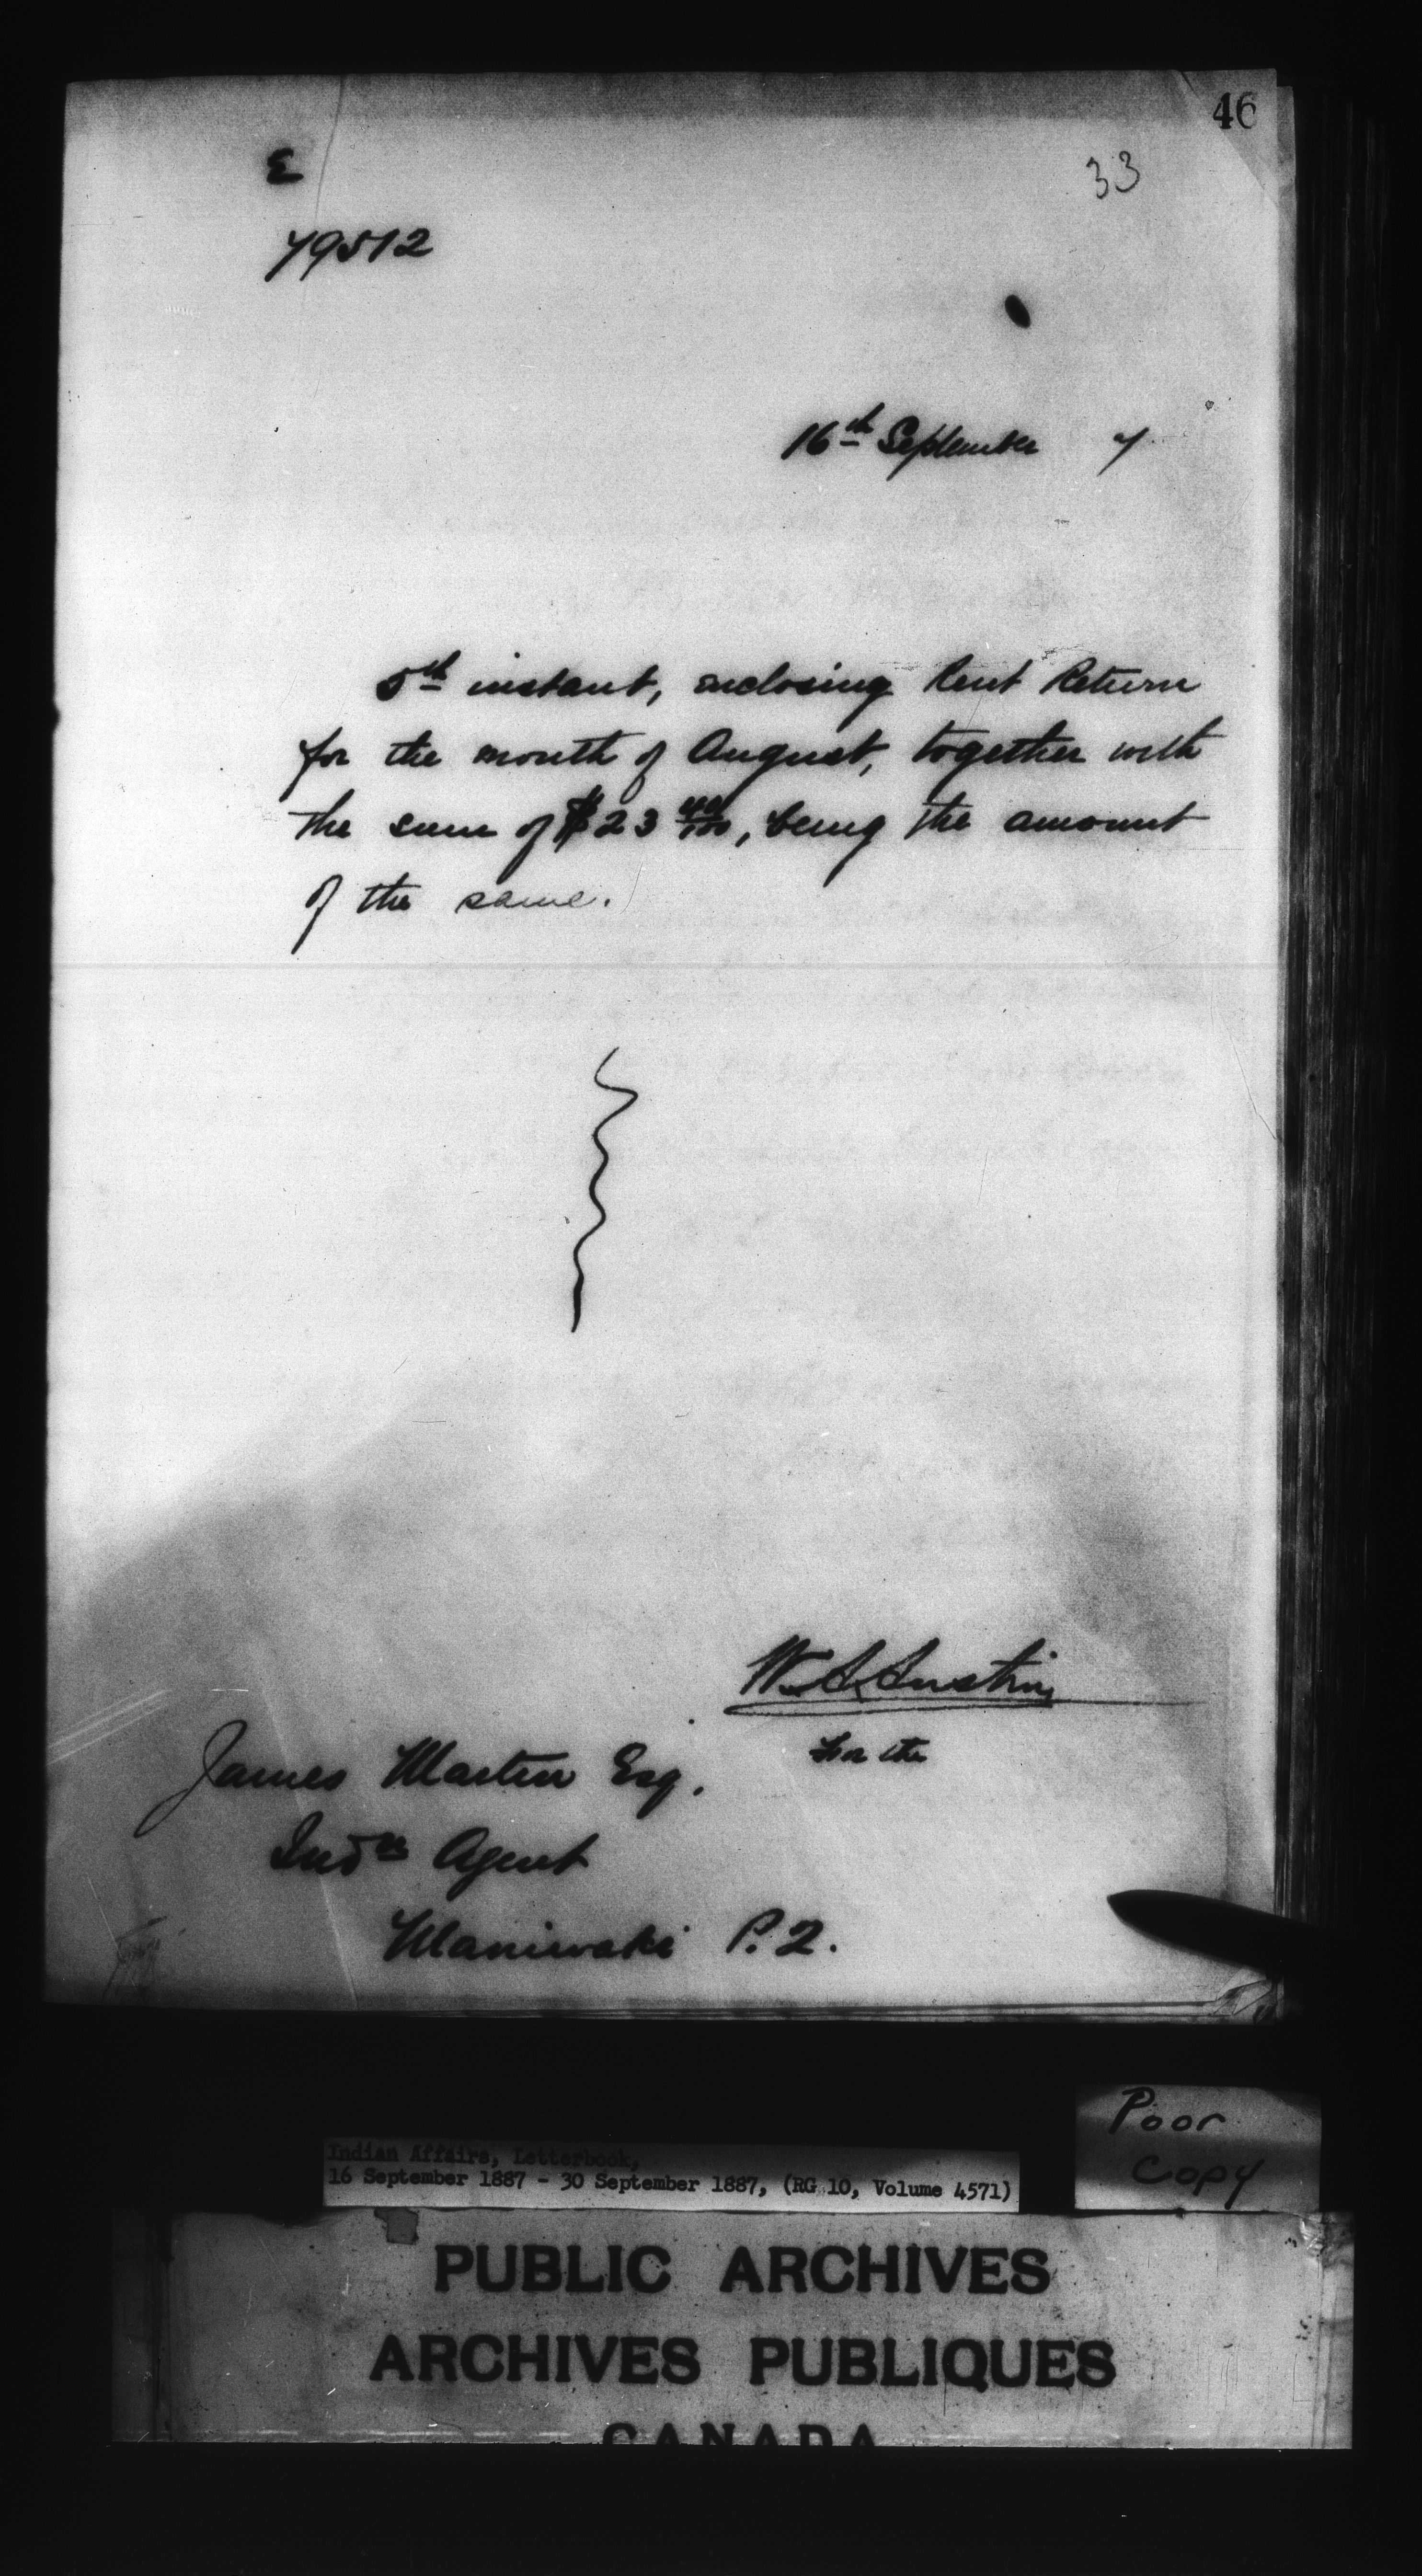 46
33
E
79512
16th September 7
5th instant, enclosing Rent Return
for the month of August, together with
the sum of $23 40/100, being the amount
of the same.
W.A. Austin
For the
James Martin Esq.
Indn Agent
Maniwaki P.Q.
Poor
Copy
Indian Affairs, Letterbook,
16 September 1887 - 30 September 1887, (RG 10, Volume 4571)
PUBLIC ARCHIVES
ARCHIVES PUBLIQUES
CANADA